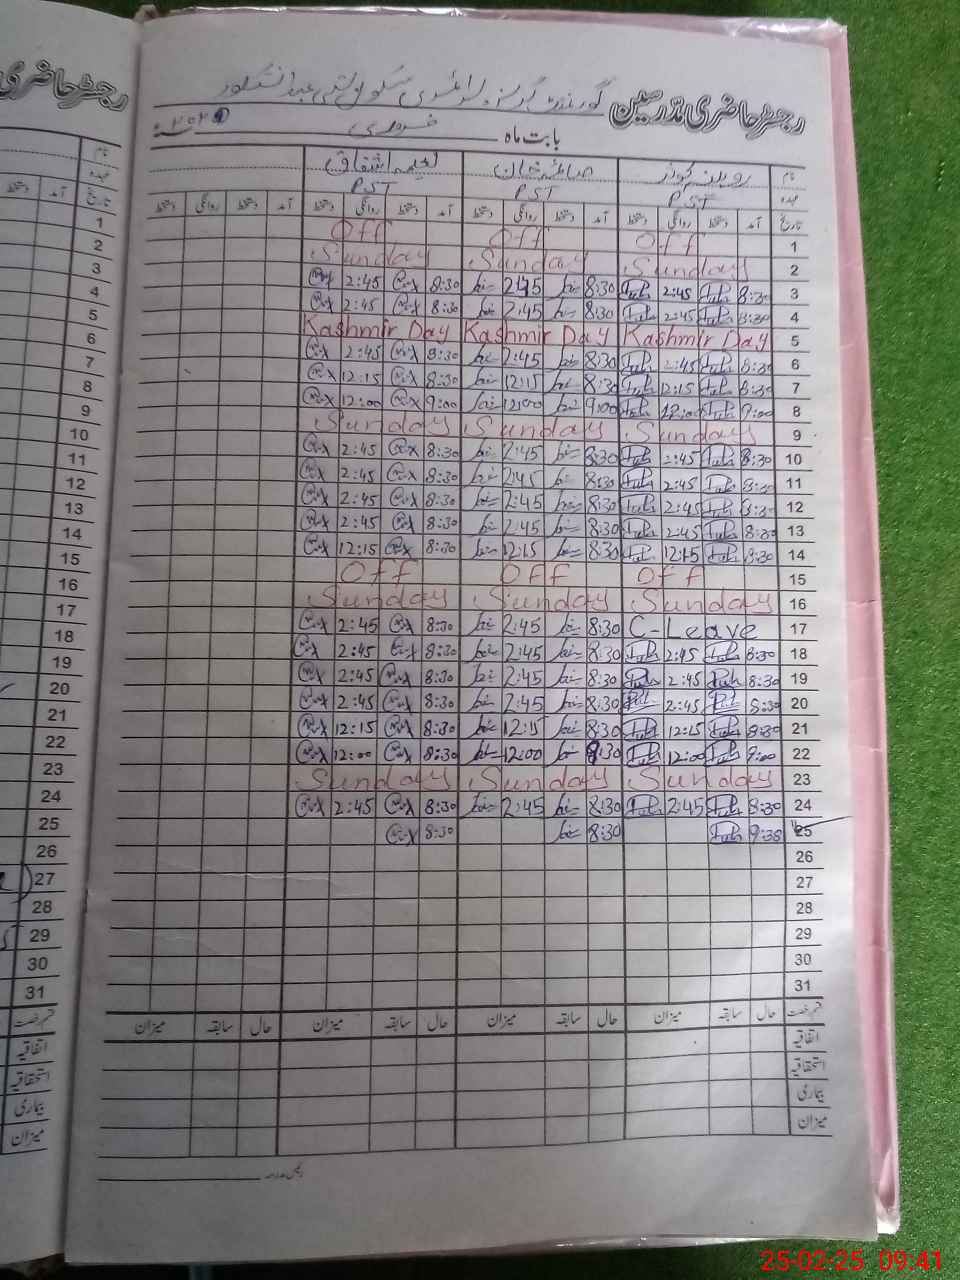 رجسٹر حاضری مدرسین گورنمنٹ گرلز پرائمری سکول بستی عبدالشکور
بابت ماہ فروری سنہ ۲۰۲۵
نام روبینہ کوثر صائمہ خان اشفاق
عہدہ PST PST PST
تاریخ آمد دستخط روانگی دستخط آمد دستخط روانگی دستخط آمد دستخط روانگی دستخط آمد دستخط روانگی دستخط
Off Off Off 1
Sunday Sunday Sunday 2
2:45 8:30 2:45 8:30 2:45 8:30 3
2:45 8:30 2:45 8:30 2:45 8:30 4
Kashmir Day Kashmir Day Kashmir Day 5
2:45 8:30 2:45 8:30 2:45 8:30 6
12:15 8:30 12:15 8:30 12:15 8:30 7
12:00 9:00 12:00 9:00 12:00 9:00 8
Sunday Sunday Sunday 9
2:45 8:30 2:45 8:30 2:45 8:30 10
2:45 8:30 2:45 8:30 2:45 8:30 11
2:45 8:30 2:45 8:30 2:45 8:30 12
2:45 8:30 2:45 8:30 2:45 8:30 13
12:15 8:30 12:15 8:30 12:15 8:30 14
Off Off Off 15
Sunday Sunday Sunday 16
2:45 8:30 2:45 8:30 C-Leave 17
2:45 8:30 2:45 8:30 2:45 8:30 18
2:45 8:30 2:45 8:30 2:45 8:30 19
2:45 8:30 2:45 8:30 2:45 8:30 20
12:15 8:30 12:15 8:30 12:15 8:30 21
12:00 8:30 12:00 8:30 12:00 9:00 22
Sunday Sunday Sunday 23
2:45 8:30 2:45 8:30 2:45 8:30 24
8:30 8:30 9:30 25
26
27
28
29
30
31
قسم رخصت حال سابقہ میزان حال سابقہ میزان حال سابقہ میزان حال سابقہ میزان
اتفاقیہ
استحقاقیہ
بیماری
میزان
رئیس مدرسہ
رجسٹر حاضری
نام
عہدہ
تاریخ آمد دستخط
1
2
3
4
5
6
7
8
9
10
11
12
13
14
15
16
17
18
19
20
21
22
23
24
25
26
27
28
29
30
31
قسم رخصت
اتفاقیہ
استحقاقیہ
بیماری
میزان
25-02-25 09:41